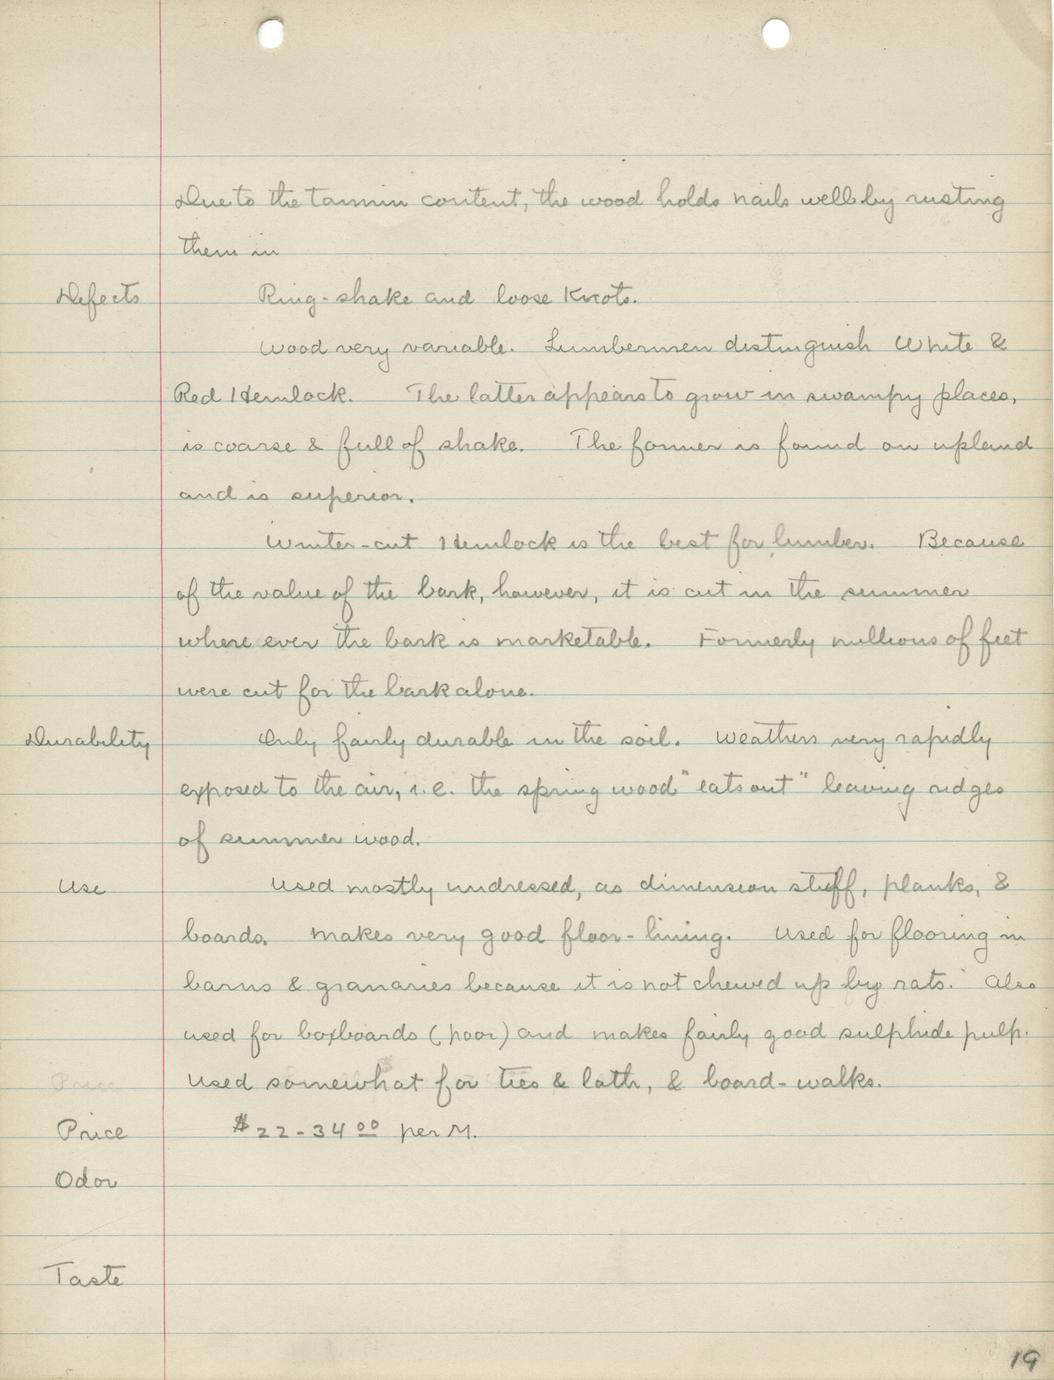 Due to the tannin content, the wood holds nails well by rusting
them in
Defects Ring-shake and loose Knots.
Wood very variable. Lumbermen distinguish White &
Red Hemlock. The latter appears to grow in swampy places,
is coarse & full of shake. The former is found on upland
and is superior.
Winter-cut Hemlock is the best for lumber. Because
of the value of the bark, however, it is cut in the summer
where ever the bark is marketable. Formerly millions of feet
were cut for the bark alone.
Durability Only fairly durable in the soil. Weathers very rapidly
exposed to the air, i.e. the spring wood "eats out" leaving ridges
of summer wood.
Use Used mostly undressed, as dimension stuff, planks, &
boards. Makes very good floor-lining. Used for flooring in
barns & granaries because it is not chewed up by rats. Also
used for boxboards (poor) and makes fairly good sulphide pulp.
Price Used somewhat for ties & lath, & board-walks.
Price $22-34 00 per M.
Odor
Taste
19